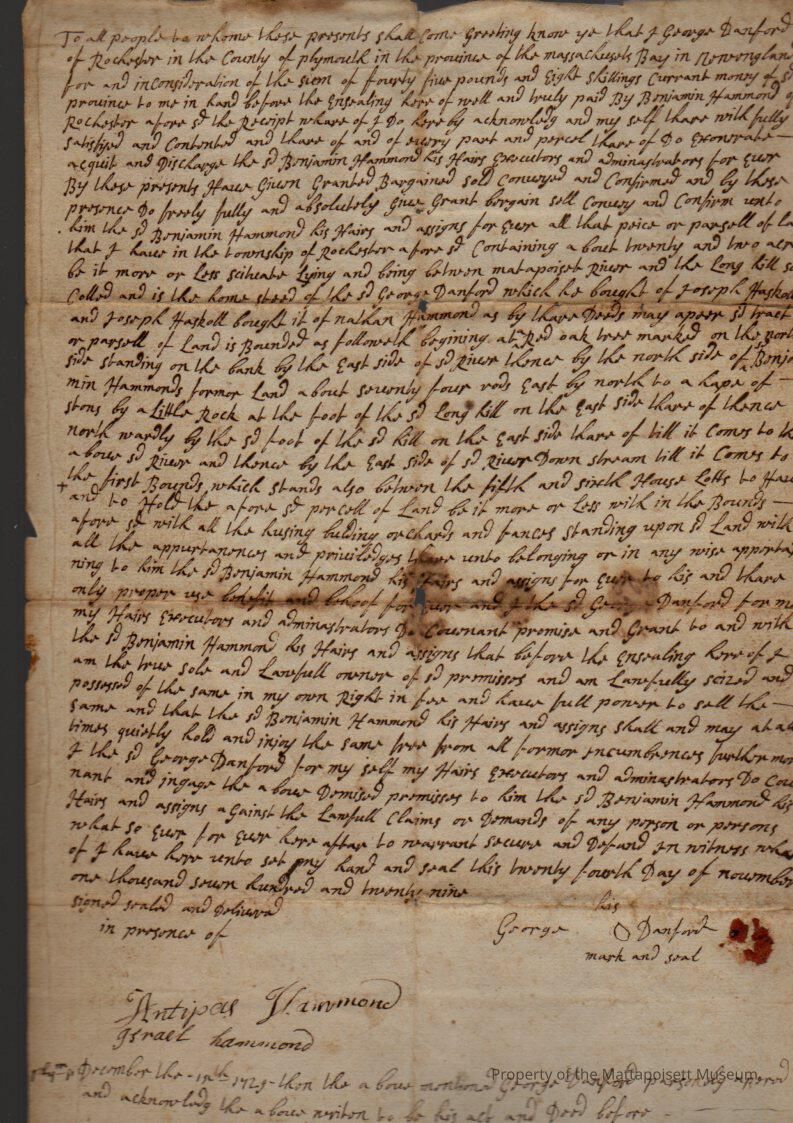 To all people to whome these presents shall Come Greeting know ye that I George Danford
of Rochester in the County of plymouth in the province of the massachusets Bay in Newengland
for and inconsideration of the sum of fourty five pounds and Eight shillings Currant money of sd
province to me in hand before the Ensealing here of well and truly paid By Benjamin Hammond of
Rochester afore sd the Receipt whare of I Do here by acknowledg and my self thare with fully
satisfyed and Contented and thare of and of every part and percel thare of Do Exonerate —
acquit and Discharge the sd Benjamin Hammond his Hairs Executors and adminastrators for Ever
By these presents Have Given Granted Bargained sold Conveyed and Confirmed and by these
presence Do freely fully and absolutely Give Grant bergain sell Convey and Confirm unto
him the sd Benjamin Hammond his Hairs and assigns for Ever all that peice or parsell of la
that I have in the township of Rochester afore sd Containing about twenty and two acr
be it more or Less scituate Lying and being between matapoiset River and the Long hill so
Colled and is the home steed of the sd George Danford which he bought of Joseph Haskoll
and Joseph Haskoll bought it of nathan Hammond as by thare Deeds may apeer sd tract
or parsell of Land is Bounded as followeth begining at Red oak tree marked on the nort
side standing on the bank by the East side of sd River thence by the north side of Benja
min Hammonds former Land about seventy four rods East by north to a hape of —
stons by a Little Rock at the foot of the sd Long hill on the East side thare of thence
north wardly by the sd foot of the sd hill on the East side thare of till it Comes to th
above sd River and thence by the East side of sd River Down stream till it Comes to
the first Bounds which stands also between the fifth and sixth House Lotts to Hav
and to Hold the afore sd percell of Land be it more or Less with in the Bounds —
afore sd with all the husing bulding orchards and fances standing upon sd Land with
all the appurtanences and priviledges thare unto belonging or in any wise apportai
ning to him the sd Benjamin Hammond his Hairs and assigns for Ever to his and thare
only proper use benefit and behoof for Ever and I the sd George Danford for me
my Hairs Executors and adminastrators Do Covenant promise and Grant to and with
the sd Benjamin Hammond his Hairs and assigns that before the Ensealing here of I
am the true sole and Lawfull owner of sd premisses and am Lawfully seized and
possessed of the same in my own Right in fee and have full power to sell the —
same and that the sd Benjamin Hammond his Hairs and assigns shall and may at al
times quietly hold and injoy the same free from all former encumbrences furthermor
I the sd George Danford for my self my Hairs Executors and adminastrators Do Cov
nant and ingage the above Demised premisses to him the sd Benjamin Hammond his
Hairs and assigns against the Lawfull Claims or Demands of any person or persons
what so Ever for Ever here aftar to warrant secure and Defand In witness whar
of I have here unto set my hand and seal this twenty fourth Day of november
one thousand seven hundred and twenty nine
signed sealed and Delivered
in presence of
his
George O Danford
mark and seal
Antipas Hammond
Israel hammond
December the 1729 then the above mentioned George Danford parsonaly apered
and acknowledg the above writen to be his act and Deed before
Property of the Mattapoisett Museum